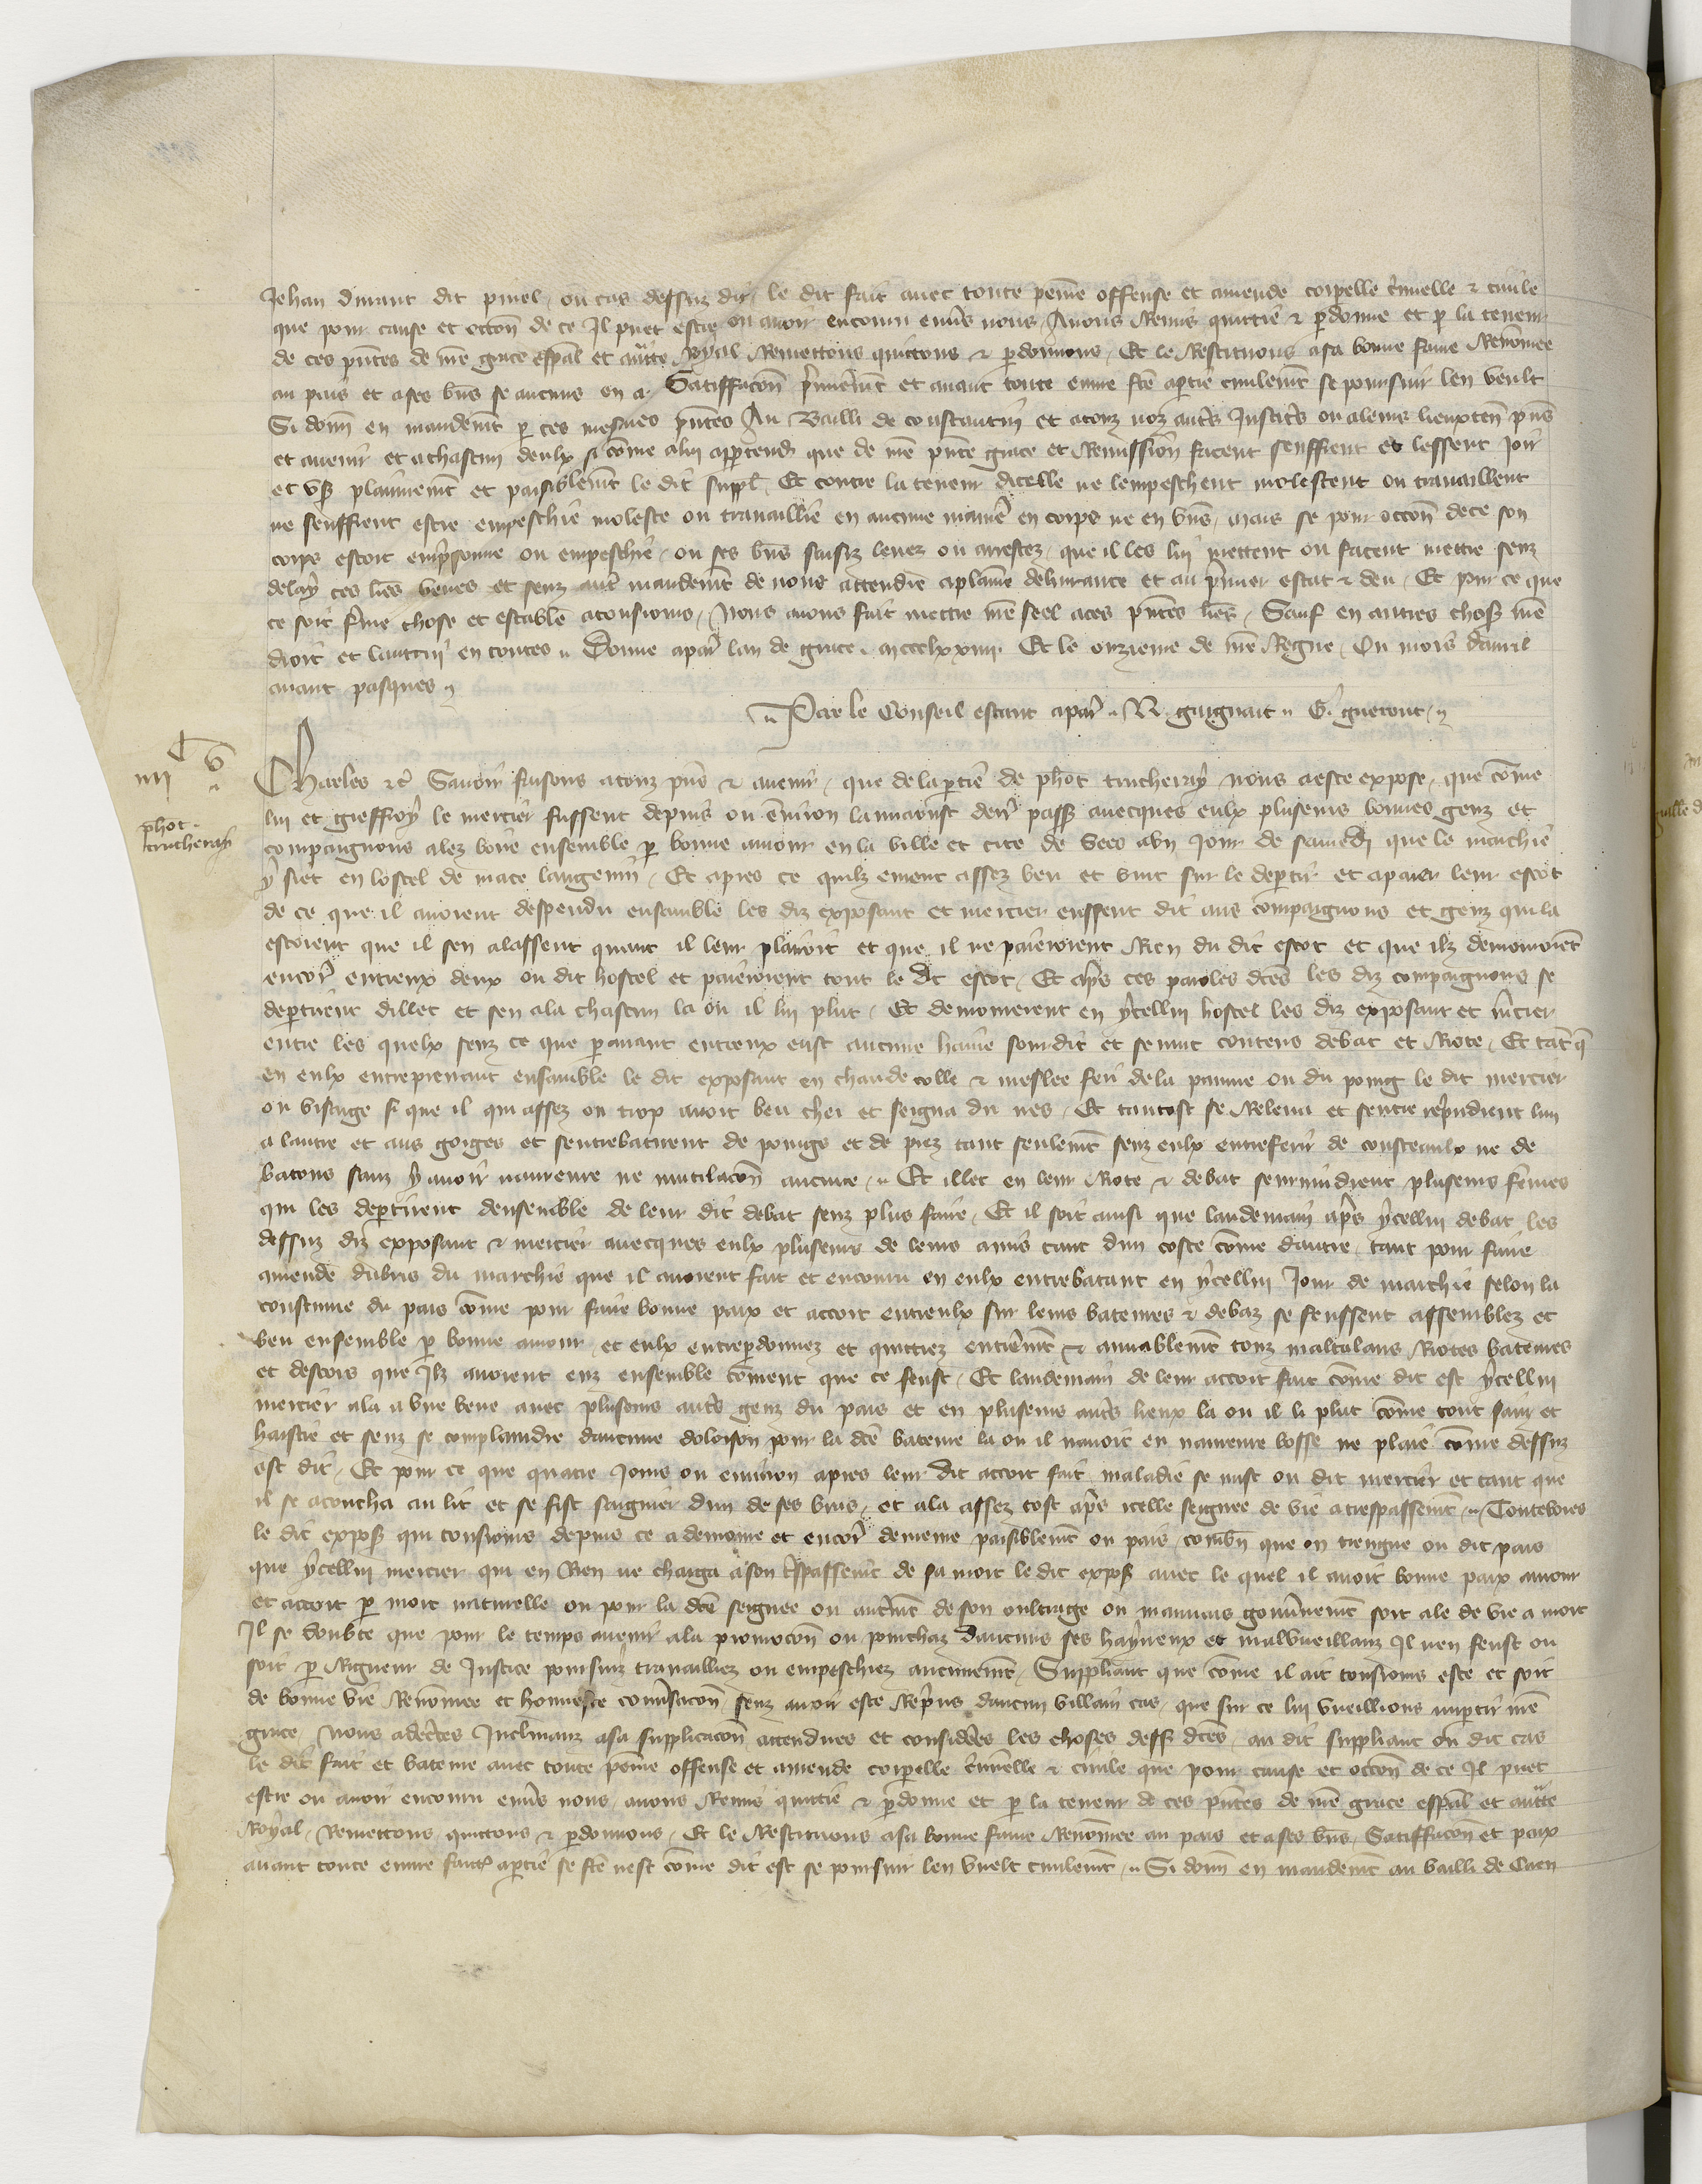 Jehan dinant dit pinel ou cas dessuz dit le dit fait avec toute peine offense et amende corpelle criminelle & civile
que pour cause et occon de ce Il puet estre ou avoir encouru envs nous Avons Remis quittie & pdonne et p la teneur
de ces pntes de nre grace espal et auttte Royal Remettons quittons & pdonnons Et le Restituons asa bonne fame Renomee
au pais et ases bns se aucuns en a Satiffacon primieremt et avant toute euvre fce aptie civilemt se poursuir len veult
Si donn en mandemt p ces mesmes pntes Au Bailli de coustantin et atouz noz autrs Justicrs ou aleurs lieuxten pns
et avenir et achascun deulx si come alui apptendr que de nre pnte grace et Remission facent seuffrent et lessent Joir
et us plainnemt et paisiblemt le dit suppl Et contre la teneur dicelle ne lempeschent molestent ou travaillent
ne seuffrent estre empeschie moleste ou travaillie en aucune manie en corps ne en bns mais se pour occon dece son
corps estoit emprisonne ou empeschie ou ses bns saisiz levez ou arrestez que il les lui mettent ou facent mettre senz
delay ces lres veues et senz autr mandemt de nous attendre aplaine delivrance et au primier estat & deu Et pour ce que
ce soit ferme chose et estable atousiours Nous avons fait mettre nre seel aces pntes lres Sauf en autres choss nre
droit et lautrui en toutes Donne apar lan de grace mccclxxiiii Et le onzieme de nre Regne Ou mois davril
avant pasques
Par le Conseil estant apar R guignart G gueront
iiii
phot
trucheray
Charles &c Savoir faisons atouz pns & avenir que dela ptie de phot trucheray nous aeste expose que come
lui et gieffroy le mercier fussent depuis ou environ laniaoust derr pass avecques eulx pluseurs bonnes genz et
compaignons alez boire ensemble p bonne amour en la ville et cite de Sees aun Jour de samedi que le marchie
y siet en lostel de mace langevin Et apres ce quilz eurent assez beu et vint sur le deptir et apaier leur escot
de ce que il avoient despendu ensamble les diz exposant et mercier eussent dit aus compaignons et genz qui la
estoient que il sen alassent quant il leur plairoit et que il ne paieroient Rien du dit escot et que ilz demourroiet
encor entreux deux ou dit hostel et paieroient tout le dit escot Et aps ces paroles dces les diz compaignons se
deptirent dillec et sen ala chascun la ou il lui plut Et demourerent en ycellui hostel les diz exposant et mcier
entre les quelx senz ce que pavant entreux eust aucune haine sourdit et semut contens debat et Riote Et tat q
en eulx entreprenant ensamble le dit exposant en chaude colle & meslee feri dela paume ou du poing le dit mercier
ou visage si que il qui assez ou trop avoit beu chei et seigna du nes Et tantost se Releva et sentre reprindrent lun
a lautre et aus gorges et sentrebatirent de poings et de piez tant seulemt senz eulx entreferir de cousteaulx ne de
batons sanz y avoir navreure ne mutilacon aucune Et illec en leur Riote & debat seurvindrent plusieurs fmes
qui les deptirent densemble de leur dit debat senz plus faire Et il soit ainsi que landemain aps ycellui debat les
dessuz diz exposant & mercier avecques eulx plusieurs de leurs amis tant dun coste come dautre tant pour faire
amende dubris du marchie que il avoient fait et encouru en eulx entrebatant en ycellui Jour de marchie selon la
coustume du pais come pour faire bonne paix et accort entreulx sur leurs batteures & debaz se feussent assemblez et
beu ensemble p bonne amour et eulx entrepdonnez et quittiez entieremt & amiablemt touz maltalans Riotes bateures
et descors que Ilz avoient euz ensemble coment que ce feust Et landemain de leur accort fait come dit est ycellui
mercier ala a une beue avec plusours autrs genz du pais et en plusieurs autrs lieux la ou il li plut come tout sain et
haitie et senz se complaindre daucune doloison pour la dce bateure la ou il navoit eu navreure bosse ne plaie come dessuz
est dit Et pour ce que quatre Jours ou environ apres leur dit accort fait maladie se mist ou dit mercier et tant que
il se acoucha au lit et se fist seignier dun de ses bras et ala assez tost aps icelle seignee de vie atrespassemt Toutevoies
le dit expos qui tousiours depuis ce a demoure et encor demeure paisiblemt ou pais combn que on tiengne ou dit pais
que ycellui mercier qui en Rien ne charga ason trespassemt de sa mort le dit expos avec le quel il avoit bonne paix amour
et accort p mort naturelle ou pour la dce seignee ou autrmt de son oultrage ou mauvais gouvnemt soit ale de vie a mort
Il se doubte que pour le temps avenir ala promocon ou pourchaz daucuns ses hayneux et malvueillanz Il nen feust ou
soit p Rigueur de Justice poursuiz travailliez ou empeschiez aucunemt Suppliant que come il ait tousiours este et soit
de bonne vie Renomee et honneste convsacon senz avoir este Repris daucun villain cas que sur ce lui vueillions impartir nre
grace Nous adectes Inclinanz asa supplicacon attendues et consideres les choses dess dces au dit suppliant ou dit cas
le dit fait et bateure avec toute peine offense et amende corpelle criminelle & civile que pour cause et occon de ce Il puet
estre ou avoir encouru envs nous avons Remis quittie & pdonne et p la teneur de ces pntes de nre grace espal et auttte
Royal Remettons quittons & pdonnons Et le Restituons asa bonne fame Renomee au pais et ases bns Satiffacon et paix
avant toute euvre faicte aptie se fce nest come dit est se poursuir len vuelt civilemt Si donn en mandemt au bailli de Caen